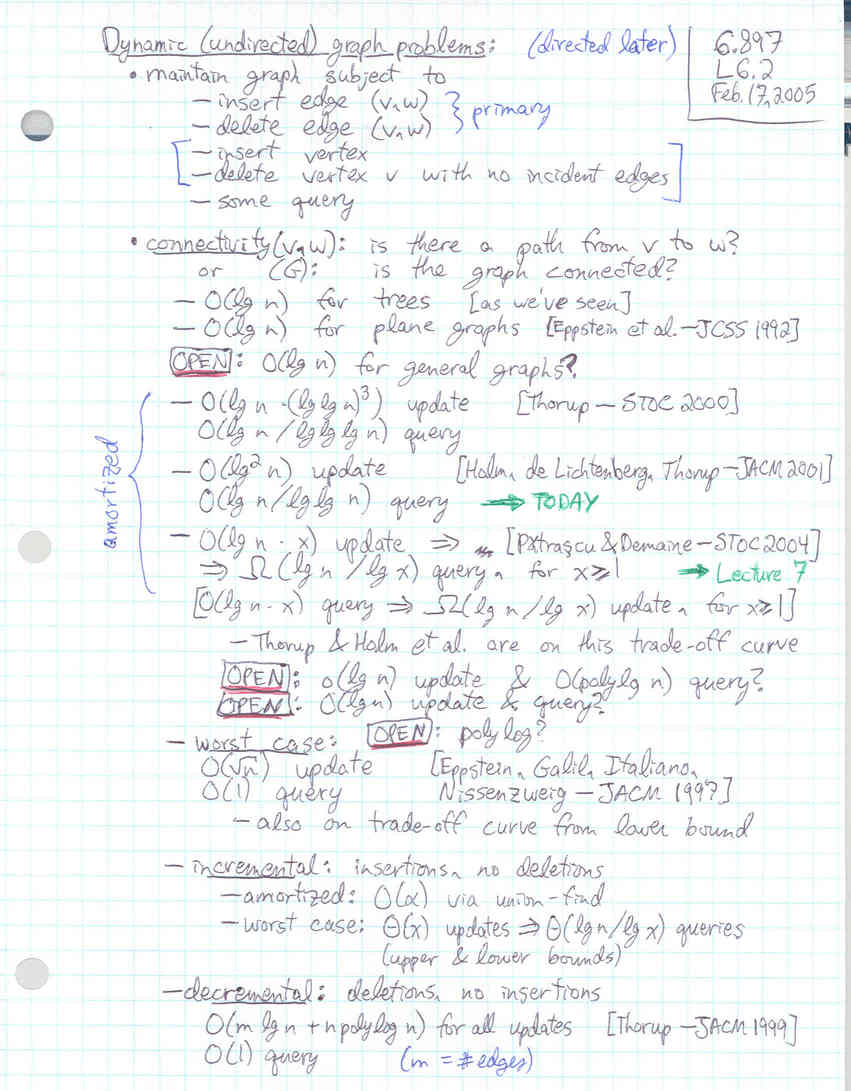 Dynamic (undirected) graph problems: (directed later)
6.897
L6.2
Feb. 17, 2005
• maintain graph subject to
— insert edge (v,w) } primary
— delete edge (v,w)
[— insert vertex
— delete vertex v with no incident edges]
— some query
• connectivity(v,w): is there a path from v to w?
or (G): is the graph connected?
— O(lg n) for trees [as we've seen]
— O(lg n) for plane graphs [Eppstein et al.—JCSS 1992]
OPEN: O(lg n) for general graphs?
amortized
— O(lg n · (lg lg n)³) update [Thorup — STOC 2000]
O(lg n / lg lg lg n) query
— O(lg² n) update [Holm, de Lichtenberg, Thorup—JACM 2001]
O(lg n/lg lg n) query → TODAY
— O(lg n · x) update ⇒ [Pătraşcu & Demaine—STOC 2004]
⇒ Ω(lg n / lg x) query, for x≥1 → Lecture 7
[O(lg n · x) query ⇒ Ω(lg n / lg x) update, for x≥1]
— Thorup & Holm et al. are on this trade-off curve
OPEN: o(lg n) update & O(polylg n) query?
OPEN: O(lg n) update & query?
— worst case: OPEN: polylog?
O(√n) update [Eppstein, Galil, Italiano,
O(1) query Nissenzweig — JACM 1997]
— also on trade-off curve from lower bound
— incremental: insertions, no deletions
— amortized: O(α) via union-find
— worst case: Θ(x) updates ⇒ Θ(lg n/lg x) queries
(upper & lower bounds)
— decremental: deletions, no insertions
O(m lg n + n polylog n) for all updates [Thorup—JACM 1999]
O(1) query (m = # edges)